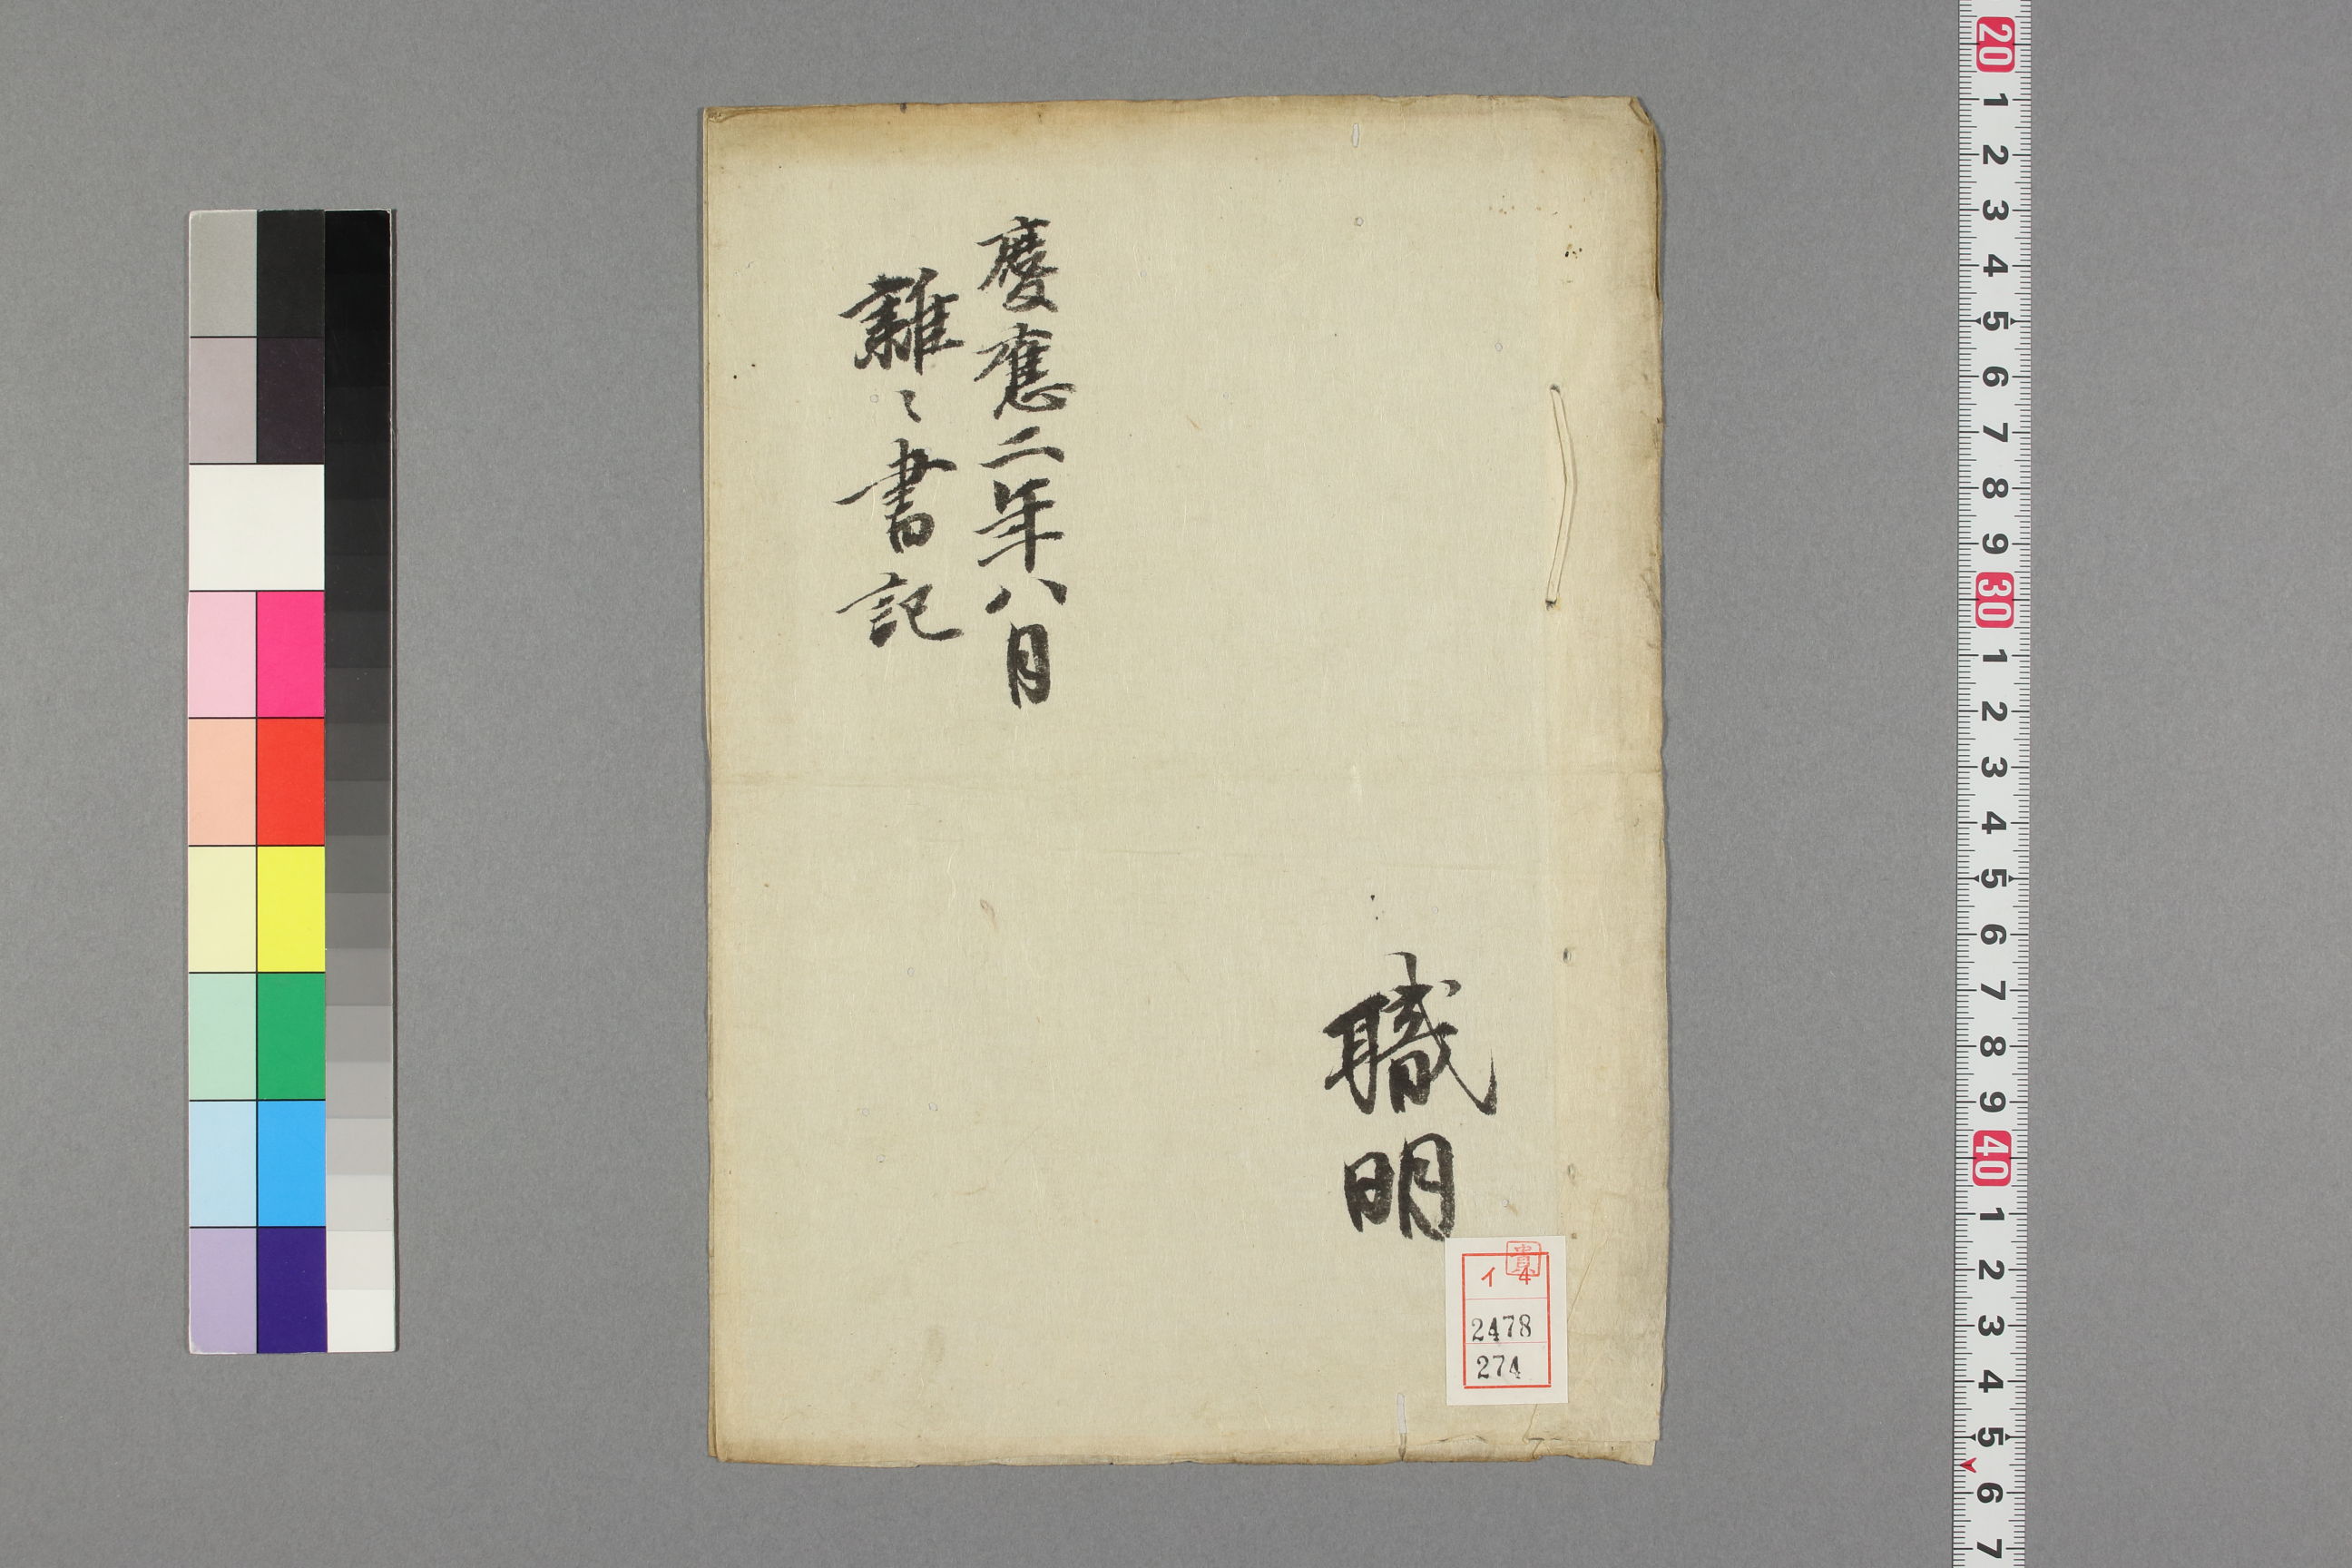 慶應二年八月
雜〻書記
職明
貴
イ 4
2478
274
20
1
2
3
4
5
6
7
8
9
30
1
2
3
4
5
6
7
8
9
40
1
2
3
4
5
6
7